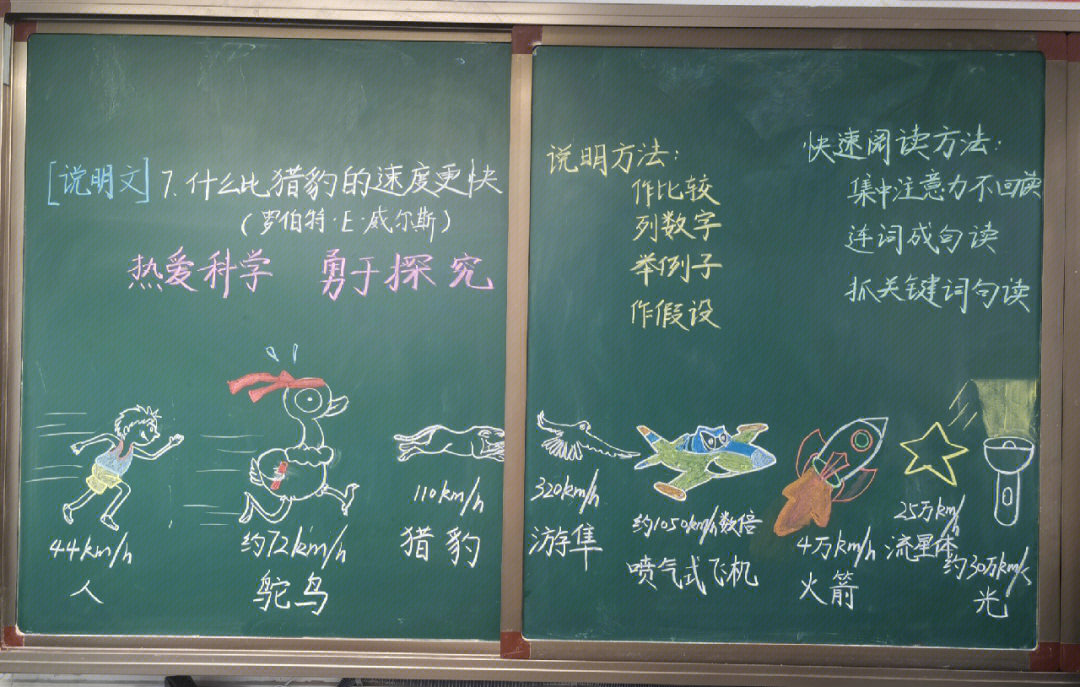 [说明文] 7. 什么比猎豹的速度更快
(罗伯特·E·威尔斯)
热爱科学 勇于探究
44km/h
人
约72km/h
鸵鸟
110km/h
猎豹
说明方法:
作比较
列数字
举例子
作假设
快速阅读方法:
集中注意力不回读
连词成句读
抓关键词句读
320km/h
游隼
约1050km/h数倍
喷气式飞机
4万km/h
火箭
25万km/h
流星体
约30万km/s
光